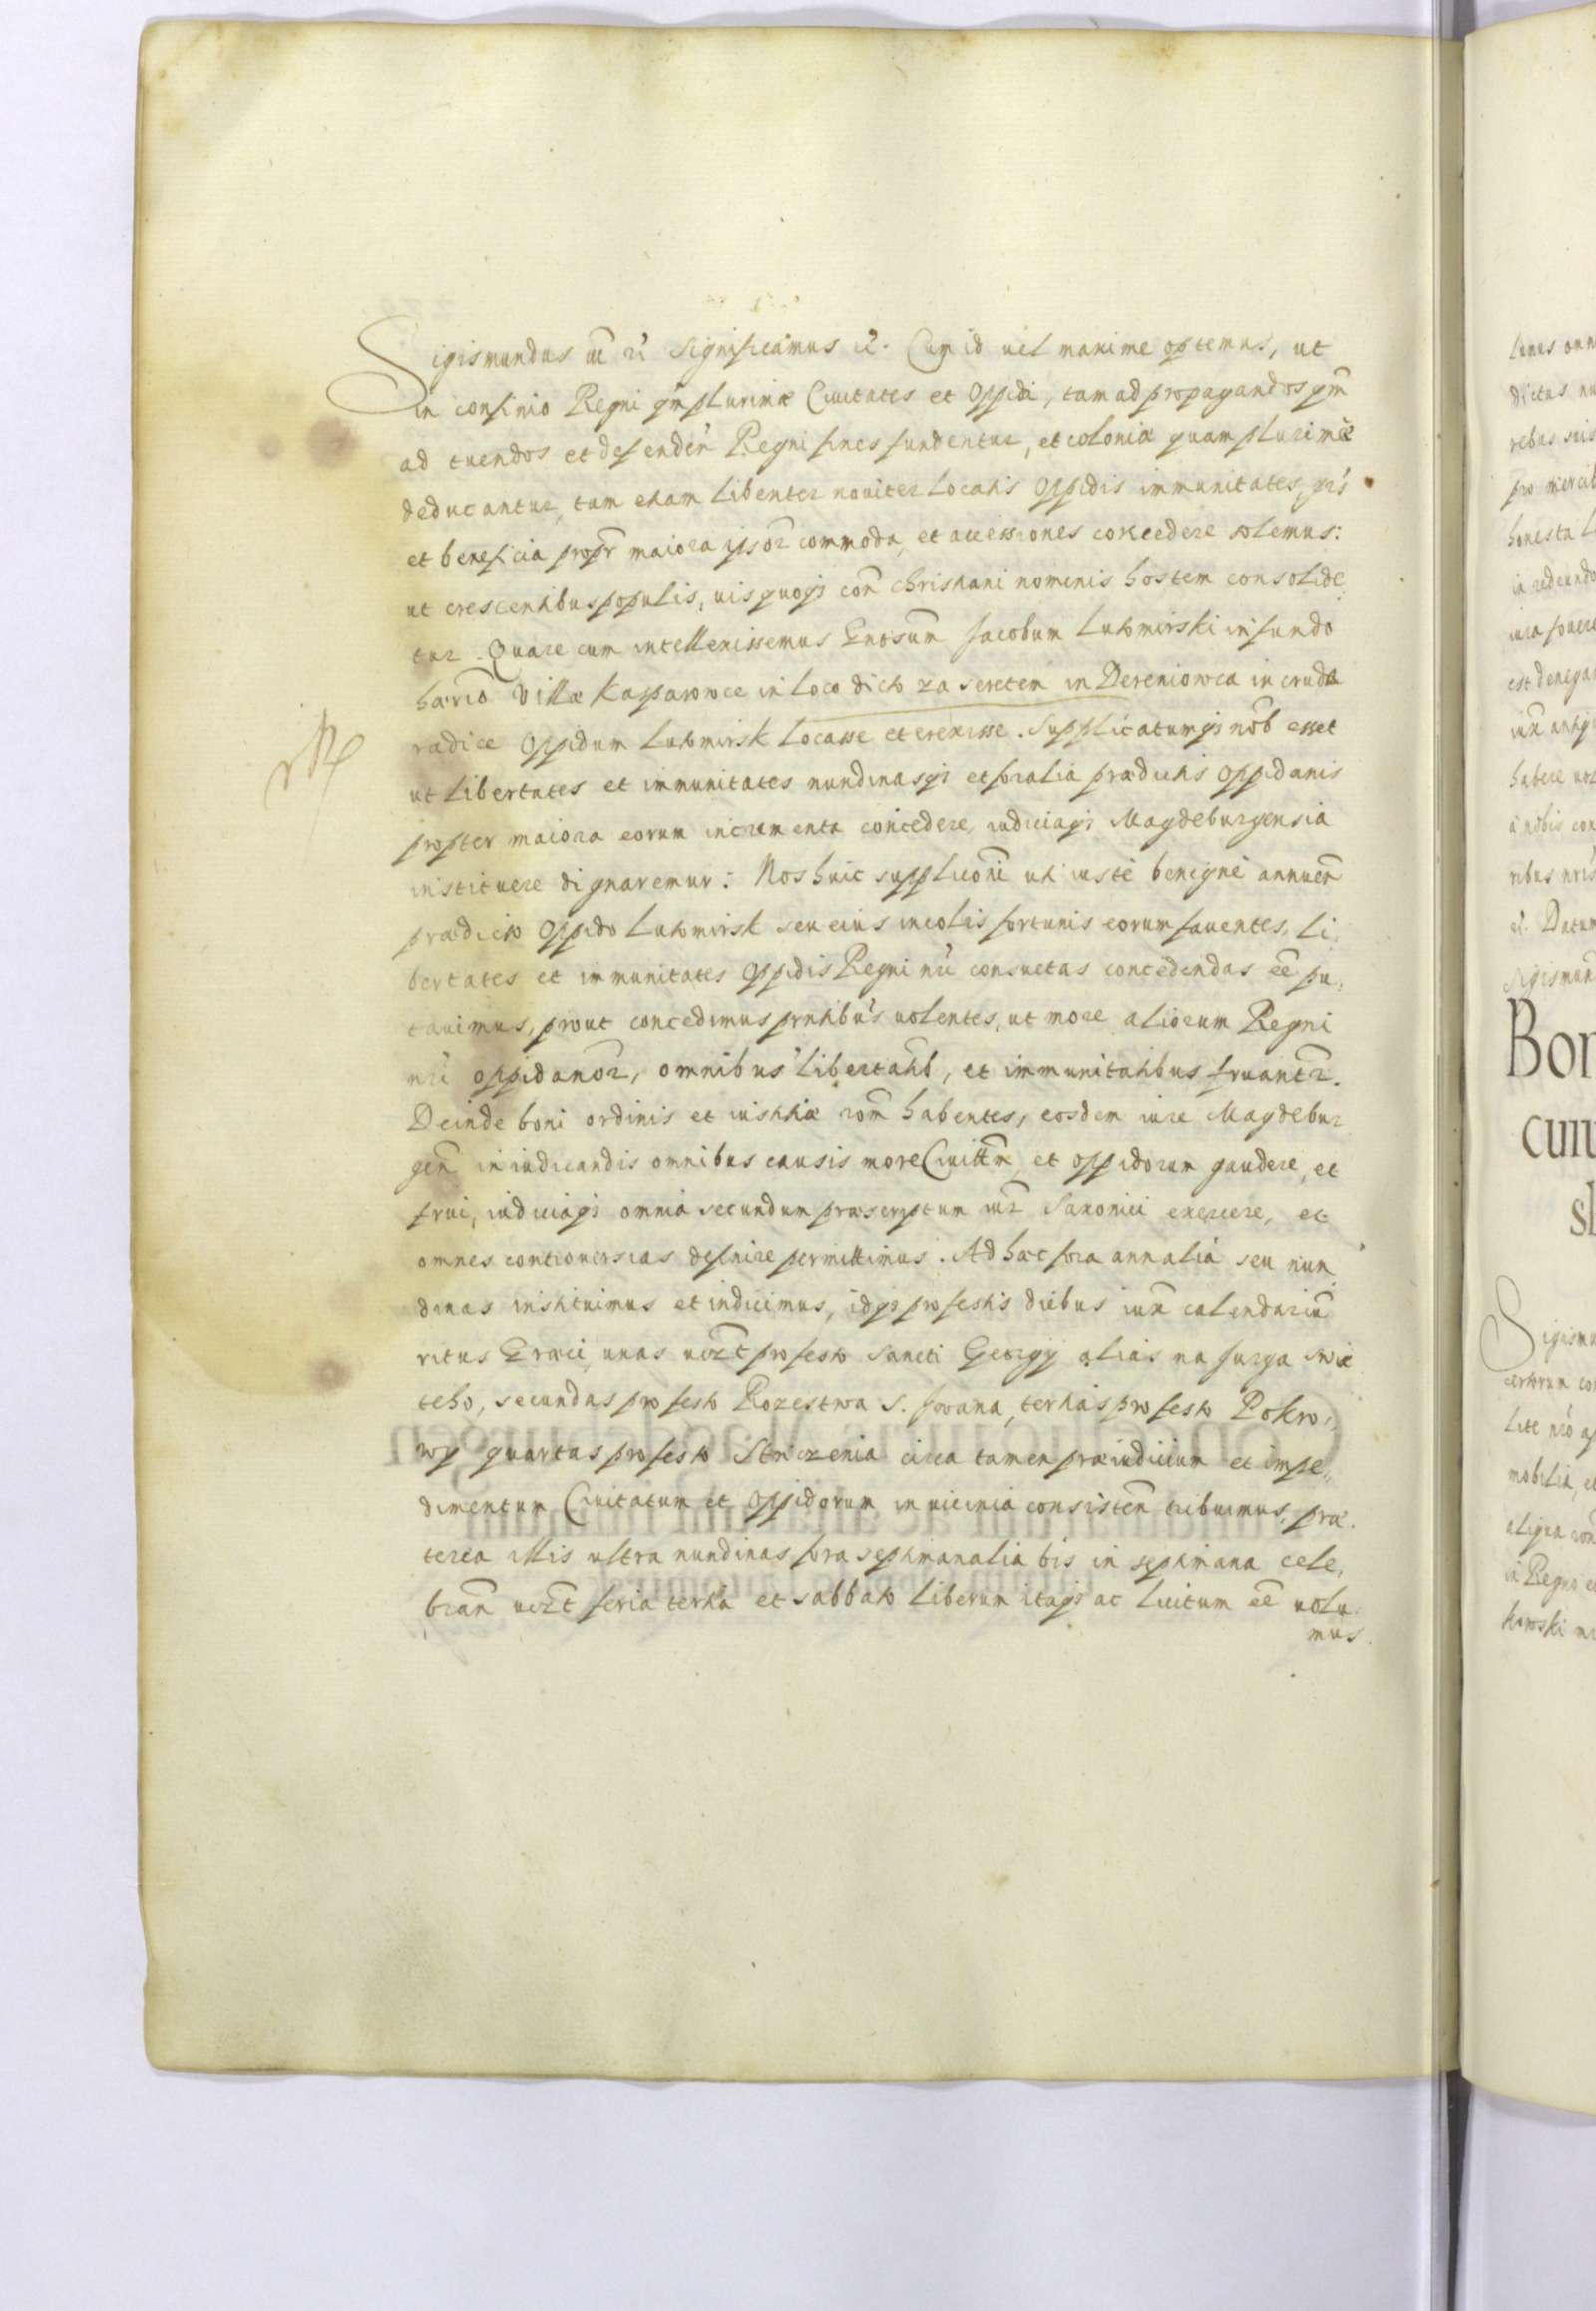 Sigismundus etc. ri significamus etc. Cum id uel maxime optemus, ut
in confinio Regni qm plurimæ Ciuitates et Oppida, tam ad propagandos qm
ad tuendos et defenden Regni fines fundentur, et coloniæ quam plurimæ
deducantur, tam etiam libenter nouiter locatis Oppidis immunitates,
et beneficia propr maiora ipsor commoda, et accessiones concedere solemus:
ut crescentibus populis, uis quoqs con christiani nominis hostem consolide
tur. Quare cum intellexissemus Gnosum Jacobum Lutomirski in fundo
hærio Villæ Kasparowce in loco dicto za seretem in Dereniowca in cruda
radice Oppidum Lutomirsk locasse et erexisse. Supplicatumqs nob esset
ut libertates et immunitates nundinasqs et foralia prædictis Oppidanis
propter maiora eorum incrementa concedere, iudiciaqs Magdeburgensia
instituere dignaremur: Nos huic supplicõni uti iustè benigne annuen
prædicto Oppido Lutomirsk seu eius incolis fortunis eorum fauentes, li,
bertates et immunitates Oppidis Regni nri consuetas concedendas eē pu,
tauimus, prout concedimus prntibus uolentes, ut more aliorum Regni
nri oppidanor, omnibus libertatib, et immunitatibus fruantr.
Deinde boni ordinis et iustitiæ rõm habentes, eosdem iure Magdebur
gen in iudicandis omnibus causis more Ciuittm et oppidorum gaudere, et
frui, iudiciaqs omnia secundum præscriptum iur Saxonici exercere, et
omnes controuersias definire permittimus. Ad hæc fora annalia seu nun
dinas instituimus et indicimus, idqs pro festis diebus iux calendariu
ritus Græci, unas uizt pro festo Sancti Georgy alias na Jurga swia
teho, secundas pro festo Rozestwa S. Jwana, tertias pro festo Pokro,
wy quartas pro festo Strczenia circa tamen præiudicium et impe,,
dimentum Ciuitatum et Oppidorum in uicinia consisten tribuimus, præ.
terea illis ultra nundinas fora septimanalia bis in septimana cele,
bran uizt feria tertia et sabbato liberum itaqs ac licitum eē uolu
mus